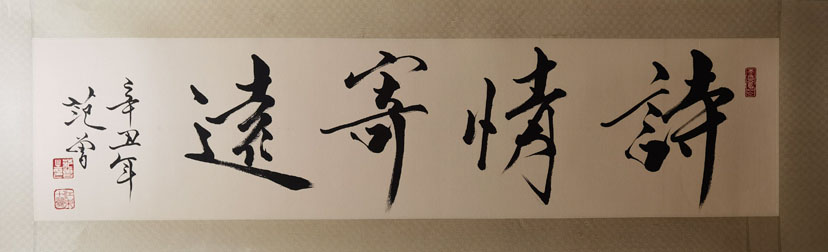 詩情寄遠
辛丑年
范曾